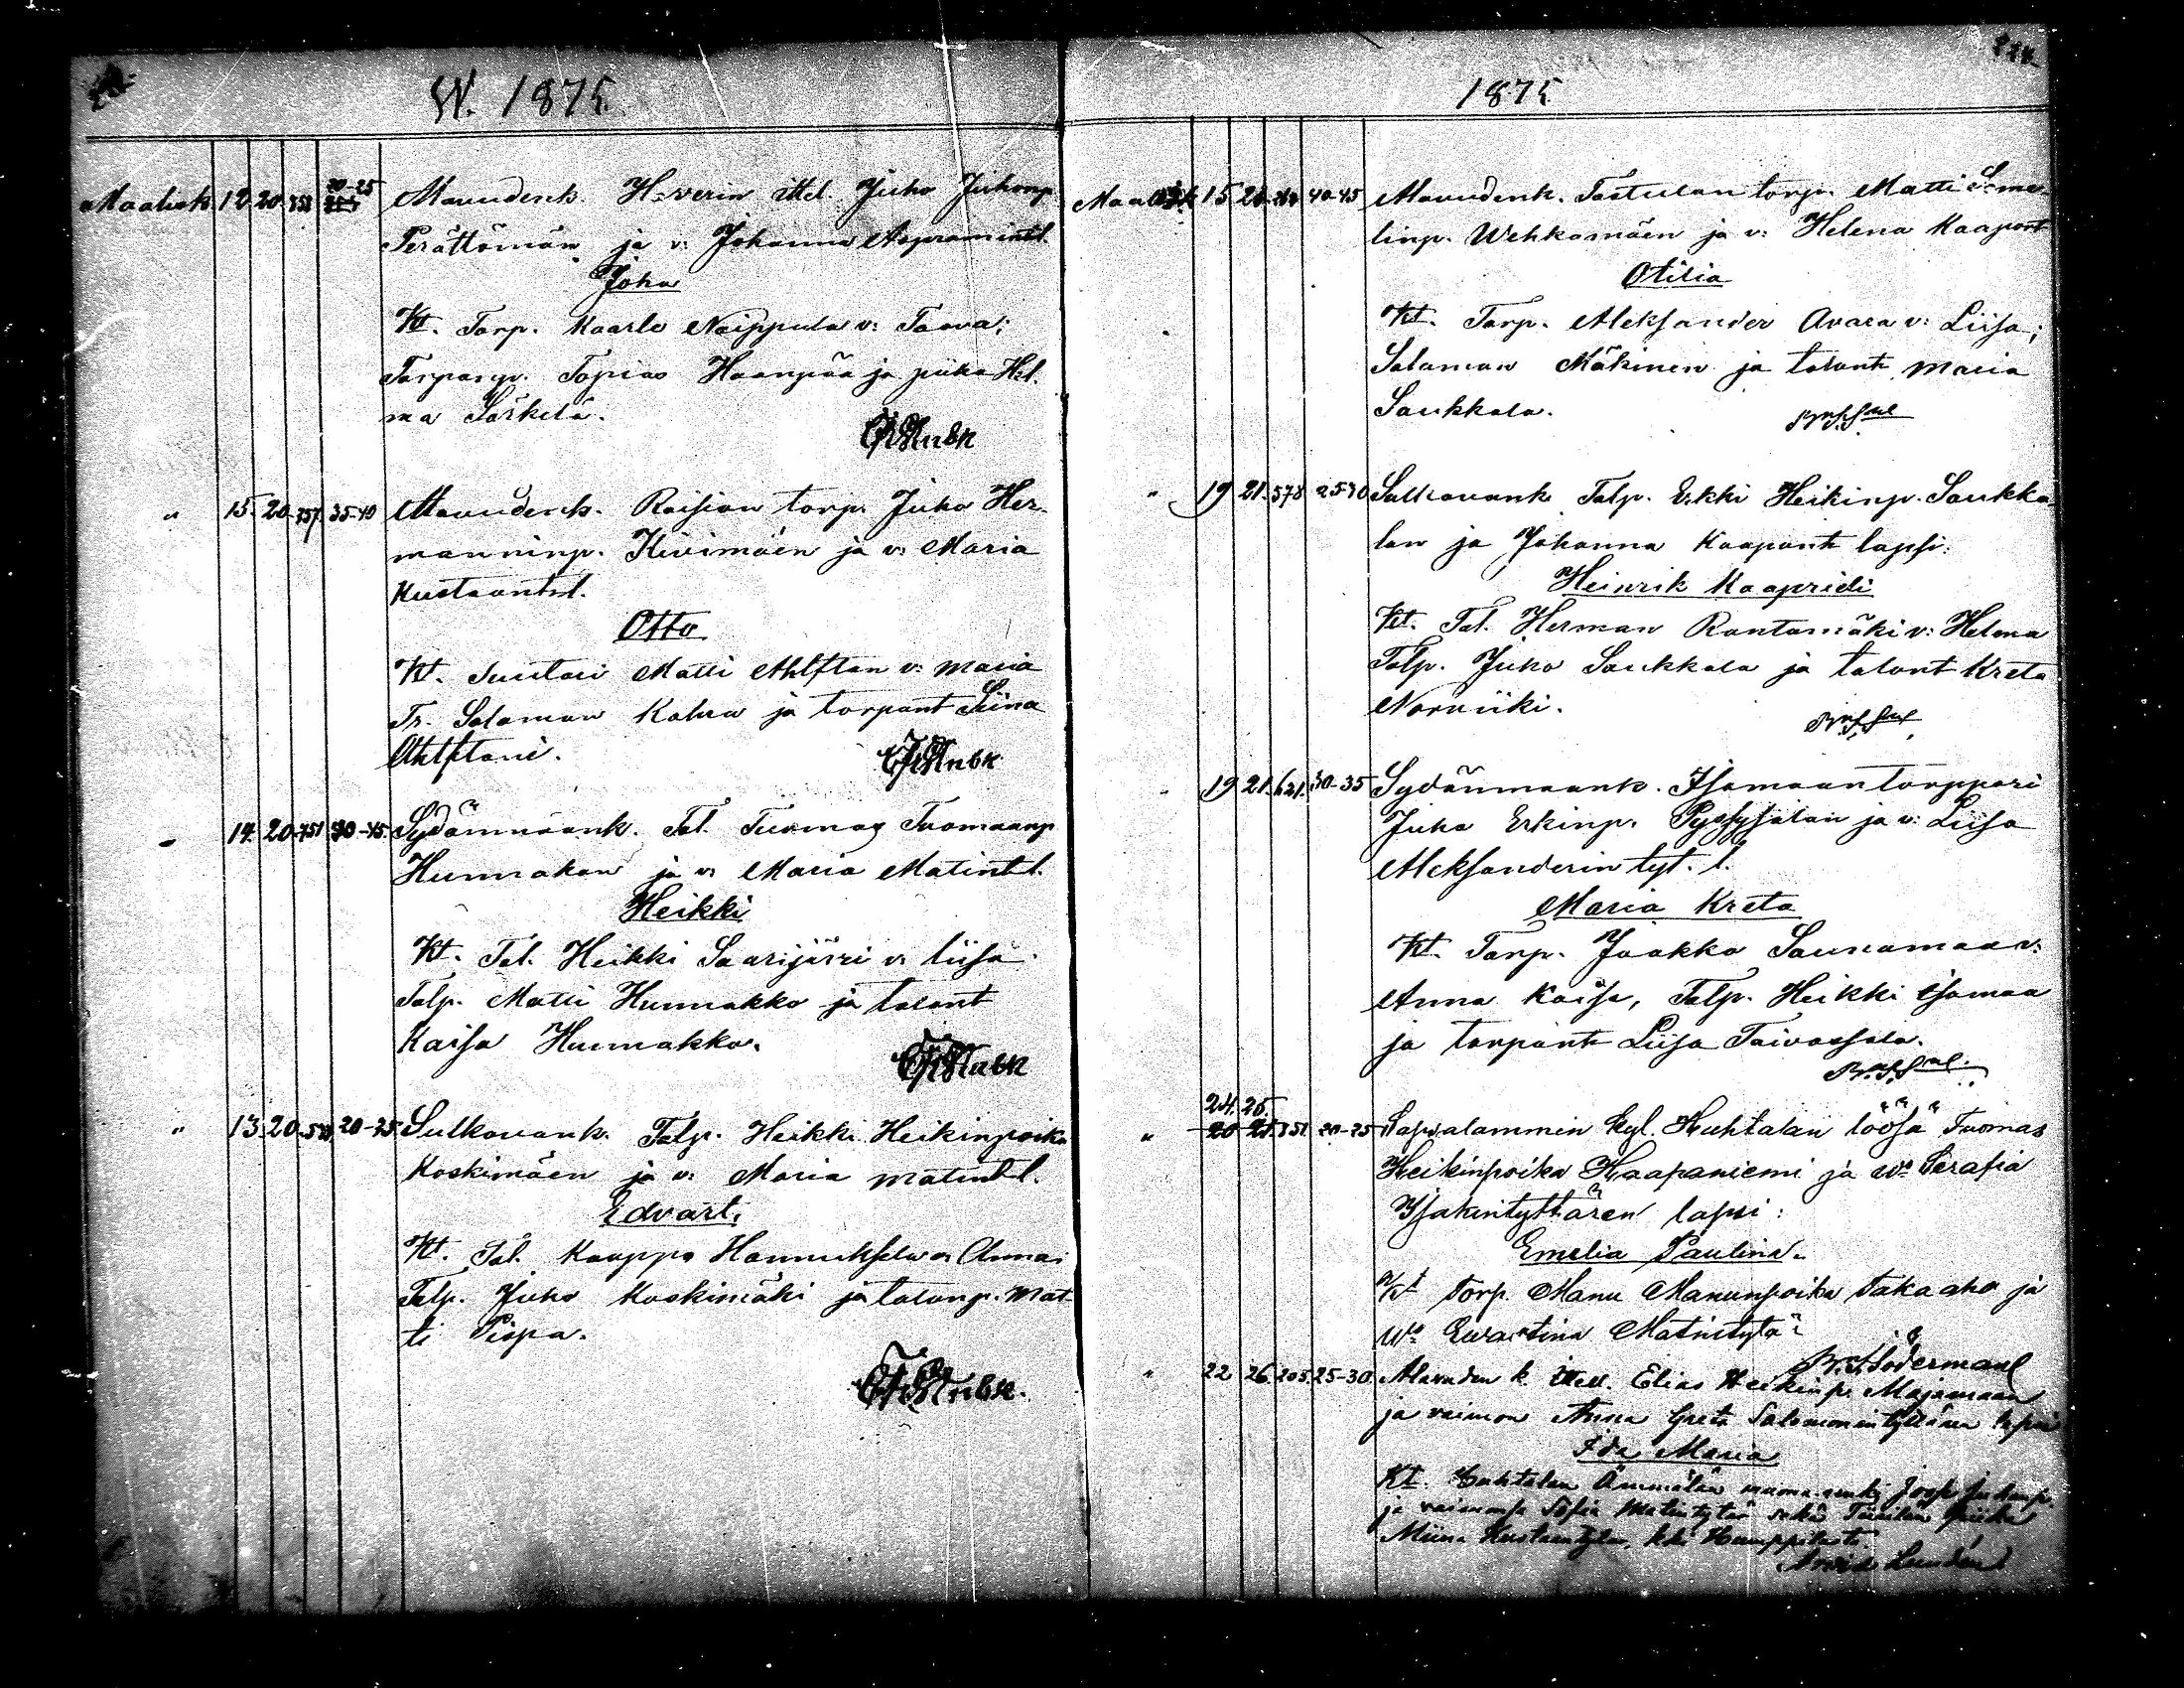 W. 1875.
Maalisk. 12. 20. 358 20-25 Alavudenk. H-verin ittel. Juho Juhonp.
Perättömän ja v: Johanna Aapramintl.
Juho
Kt. Torp. Kaarlo Naippula v: Taava;
Torparip. Topias Haanpää ja piika Hel-
ma Särkelä.
" 15. 20. 757. 35-40 Alavudenk. Raisian torp. Juho Her-
manninp. Kivimäen ja v: Maria
Kustaantl.
Otto
Kt. Suutari Matti Ahlstan v: Maria
Tr. Salaman Kahra ja torpant Liina
Ahlstani.
" 14. 20. 751 40-45. Sydänmaank. Tal. Tuomas Tuomaanp
Hunnakon ja v: Maria Matintl.
Heikki
Kt. Tal. Heikki Saarijärvi v: Liisa.
Talp. Matti Hunnakko ja talont
Kaisa Hunnakko.
" 13. 20. 20-25. Sulkavank. Talp. Heikki Heikinpoika
Koskimäen ja v: Maria Matintl.
Edvart.
Kt. Tal. Kaappo Hannuksela v: Anna;
Talp. Juho Koskimäki ja talonp. Mat-
ti Pispa.
1875
Maalisk 15 21. 40-45 Alavudenk. Tastulan torp. Matti Same-
linp. Wehkamäen ja v: Helena Kaapont
Otilia
Kt. Torp. Aleksander Avara v: Liisa;
Salaman Mäkinen ja talont. Maria
Saukkala.
" 19 21. 578 25-30 Sulkavank. Talp. Erkki Heikinp. Saukka-
lan ja Johanna Kaapont lapsi:
Heinrik Kaapridi
Kt. Tal. Herman Rantamäki v: Helena
Talp. Juho Saukkala ja talont Kreta
Norviiki.
19 21. 621. 30-35 Sydänmaank. Isomaan torppari
Juha Erkinp. Pyssysalan ja v: Liisa
Aleksanderin tyt. l.
Maria Kreta
Kt. Torp. Jaakko Saunamaa v:
Anna Kaisa, Talp. Heikki Isomaa
ja torpant Liisa Taivassalo.
24. 25.
" 20 21. 351 20-25 Sapsalammin kyl. Huhtalan löösä Tuomas
Heikinpoika Haapaniemi ja wo Serafia
Isakintyttären lapsi:
Emelia Paulina.
Kt Torp. Manu Manunpoika Takaaho ja
wo Ewastina Matintytä
Södermanl
" 22 26. 205. 25-30. Alavuden k. Ittell. Elias Heikinp. Majamaan
ja vaimon Anna Greta Salomonintyttären lapsi
Ida Maria
Kt. Huhtalan Josep Juhonp.
ja vaimonsa Sofia Matintytär sekä piika
Miina
Lundén